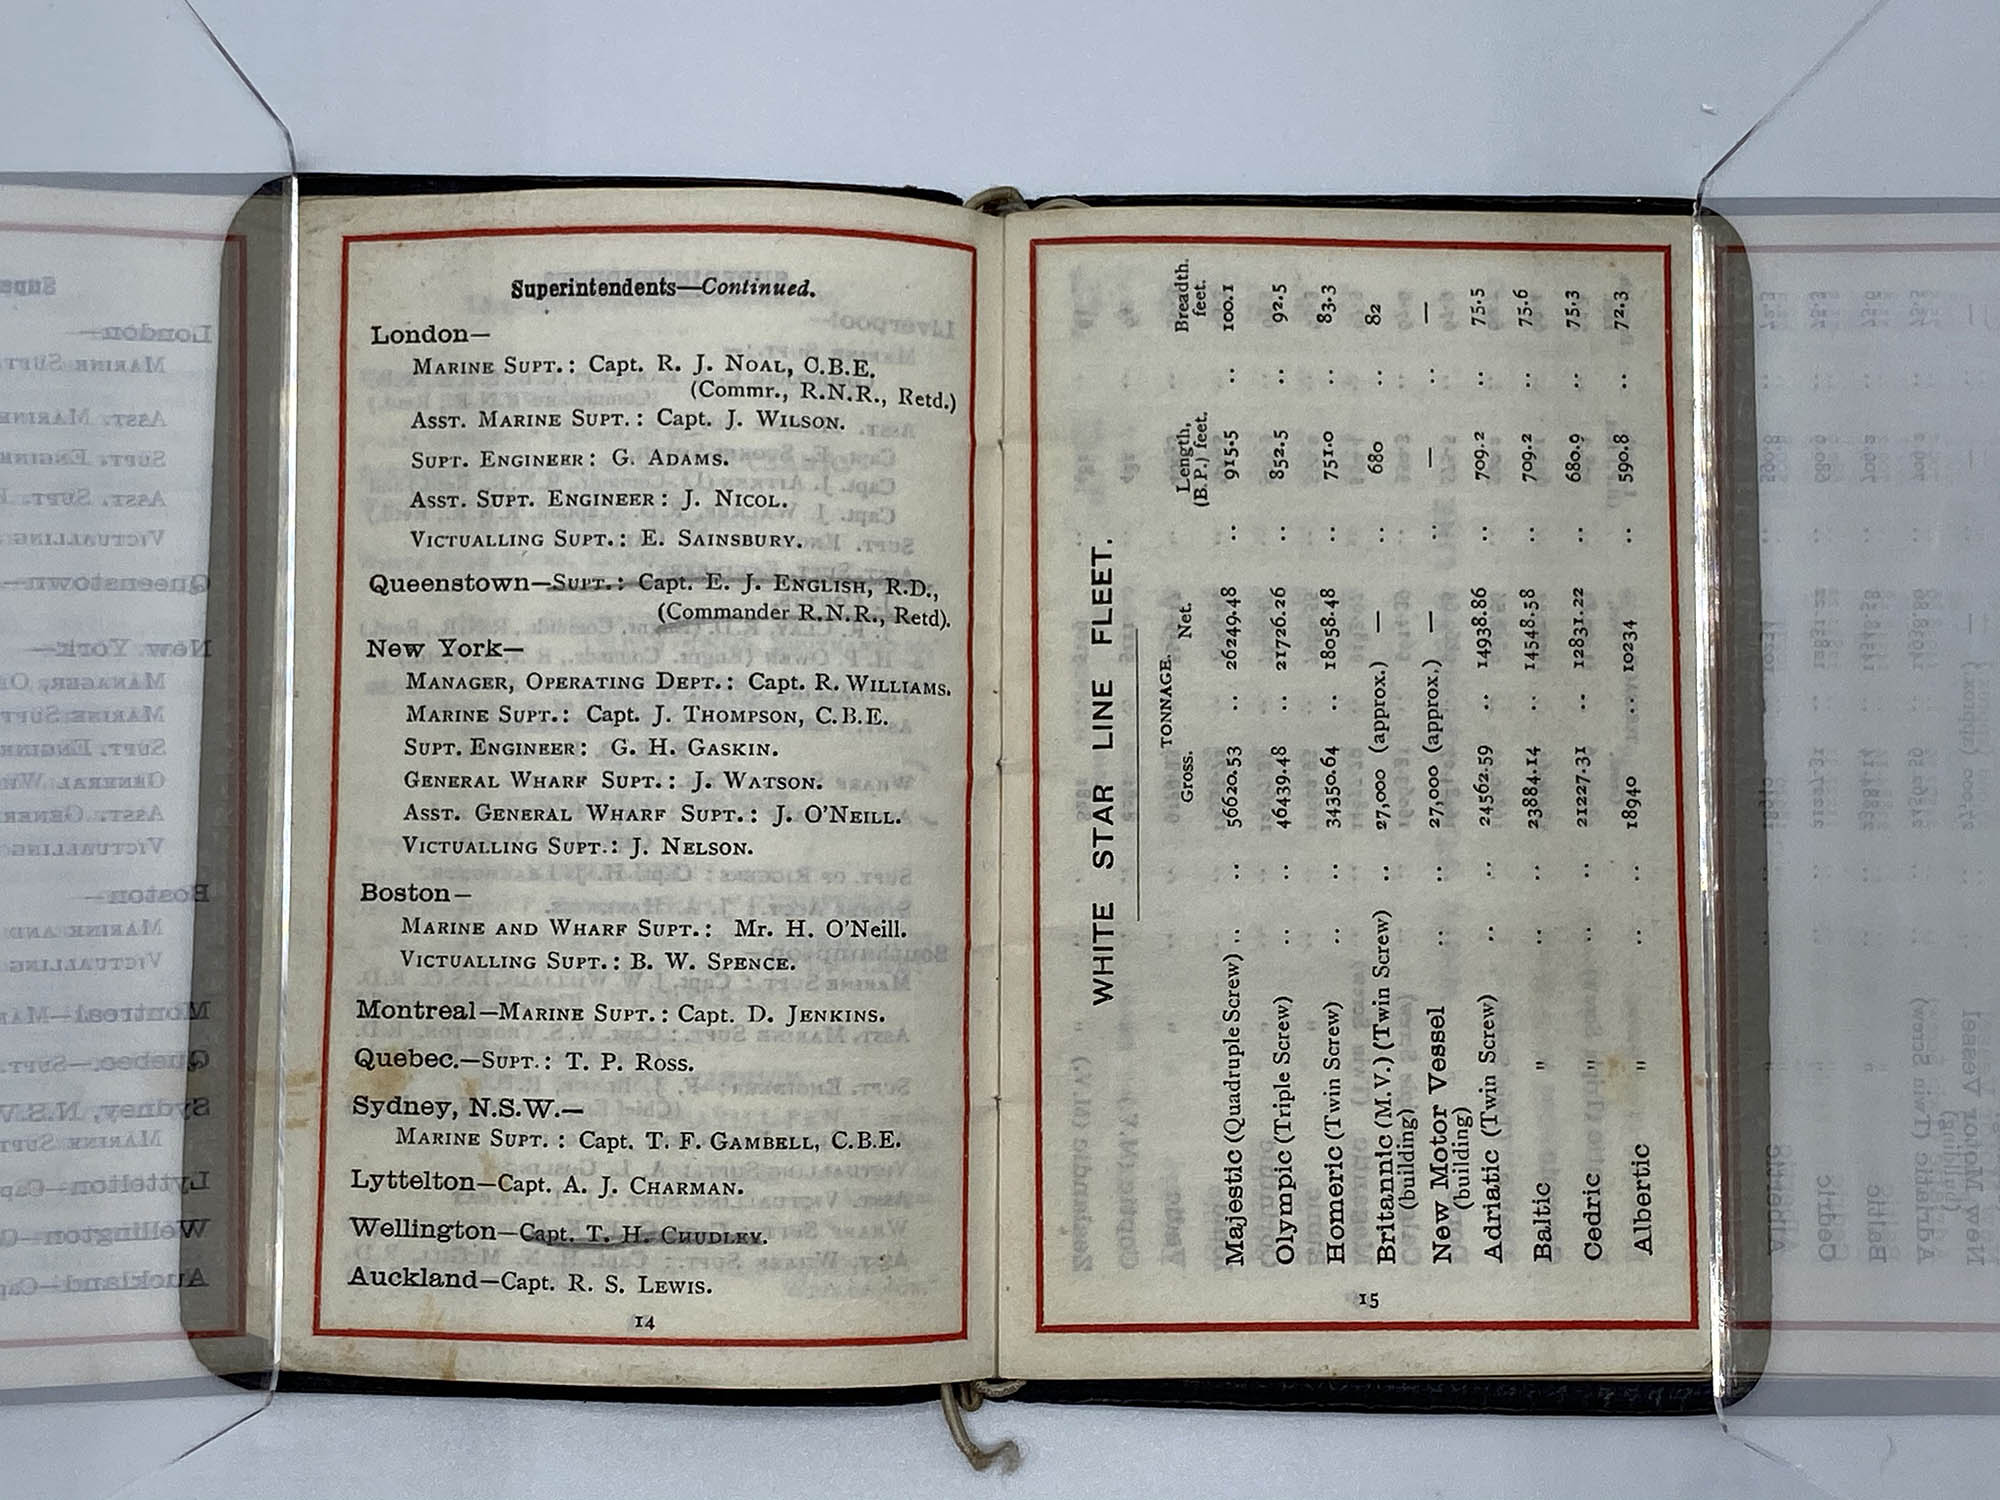 Superintendents—Continued.
London—
MARINE SUPT.: Capt. R. J. NOAL, C.B.E.
(Commr., R.N.R., Retd.)
ASST. MARINE SUPT.: Capt. J. WILSON.
SUPT. ENGINEER: G. ADAMS.
ASST. SUPT. ENGINEER: J. NICOL.
VICTUALLING SUPT.: E. SAINSBURY.
Queenstown—SUPT.: Capt. E. J. ENGLISH, R.D.,
(Commander R.N.R., Retd).
New York—
MANAGER, OPERATING DEPT.: Capt. R. WILLIAMS.
MARINE SUPT.: Capt. J. THOMPSON, C.B.E.
SUPT. ENGINEER: G. H. GASKIN.
GENERAL WHARF SUPT.: J. WATSON.
ASST. GENERAL WHARF SUPT.: J. O'NEILL.
VICTUALLING SUPT.: J. NELSON.
Boston—
MARINE AND WHARF SUPT.: Mr. H. O'Neill.
VICTUALLING SUPT.: B. W. SPENCE.
Montreal—MARINE SUPT.: Capt. D. JENKINS.
Quebec.—SUPT.: T. P. ROSS.
Sydney, N.S.W.—
MARINE SUPT.: Capt. T. F. GAMBELL, C.B.E.
Lyttelton—Capt. A. J. CHARMAN.
Wellington—Capt. T. H. CHUDLEY.
Auckland—Capt. R. S. LEWIS.
14
WHITE STAR LINE FLEET.
TONNAGE. Length, Breadth.
Gross. Net. (B.P.) feet. feet.
Majestic (Quadruple Screw) .. .. 56620.53 .. 26249.48 .. 915.5 .. 100.1
Olympic (Triple Screw) .. .. 46439.48 .. 21726.26 .. 852.5 .. 92.5
Homeric (Twin Screw) .. .. 34350.64 .. 18058.48 .. 751.0 .. 83.3
Britannic (M.V.) (Twin Screw) .. 27,000 (approx.) — .. 680 .. 82
(building)
New Motor Vessel .. .. 27,000 (approx.) — .. — .. —
(building)
Adriatic (Twin Screw) .. .. 24562.59 .. 14938.86 .. 709.2 .. 75.5
Baltic " .. .. 23884.14 .. 14548.58 .. 709.2 .. 75.6
Cedric " .. .. 21227.31 .. 12831.22 .. 680.9 .. 75.3
Albertic " .. .. 18940 .. 10234 .. 590.8 .. 72.3
15